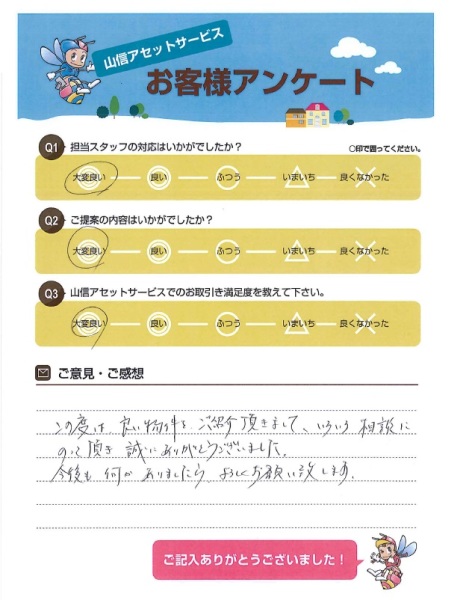 山信アセットサービス
お客様アンケート
Q1 担当スタッフの対応はいかがでしたか？ ○印で囲ってください。
大変良い 良い ふつう いまいち 良くなかった
Q2 ご提案の内容はいかがでしたか？
大変良い 良い ふつう いまいち 良くなかった
Q3 山信アセットサービスでのお取引き満足度を教えて下さい。
大変良い 良い ふつう いまいち 良くなかった
ご意見・ご感想
この度は、良い物件を、ご紹介頂きまして、いろいろ 相談に
のって頂き 誠にありがとうございました。
今後も 何か ありましたら よろしくお願い致します。
ご記入ありがとうございました！